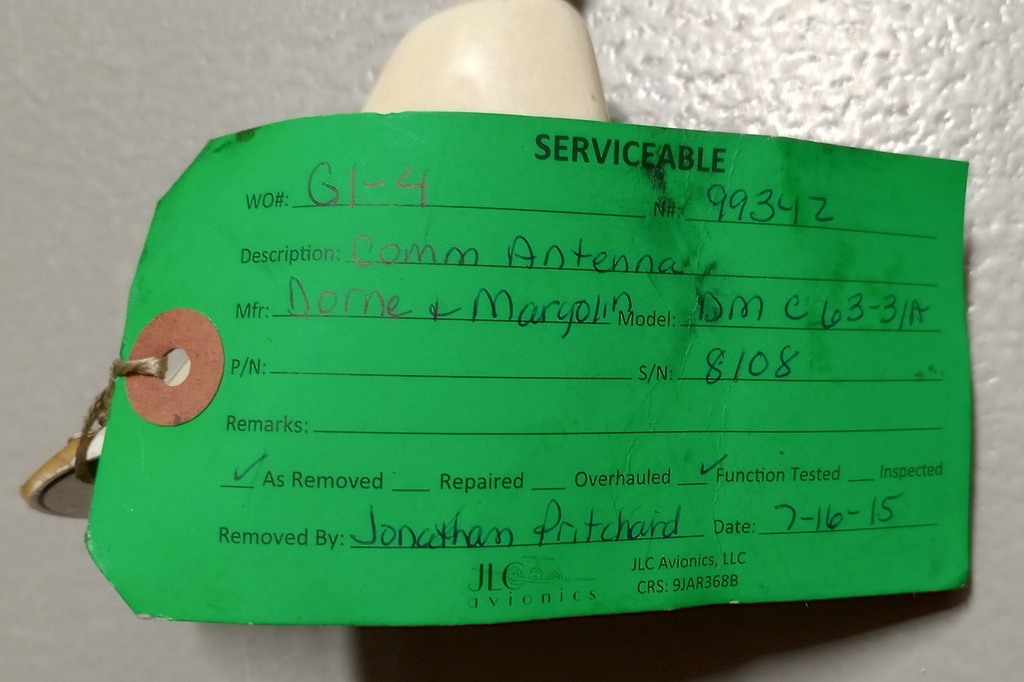 SERVICEABLE
WO#: G1-4 N#: 99342
Description: Comm Antenna
Mfr: Dorne & Margolin Model: DM C 63-31A
P/N: S/N: 8108
Remarks:
✓ As Removed Repaired Overhauled ✓ Function Tested Inspected
Removed By: Jonathan Pritchard Date: 7-16-15
JLC avionics JLC Avionics, LLC
CRS: 9JAR368B